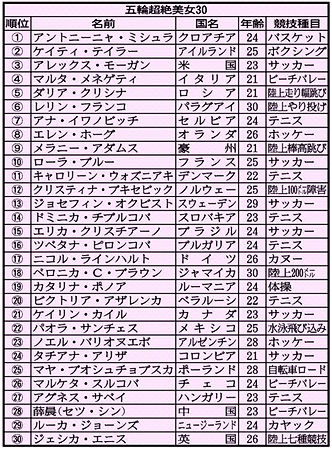 五輪超絶美女30
順位 名前 国名 年齢 競技種目
① アントニーニャ・ミシュラ クロアチア 24 バスケット
② ケイティ・テイラー アイルランド 25 ボクシング
③ アレックス・モーガン 米国 23 サッカー
④ マルタ・メネゲティ イタリア 21 ビーチバレー
⑤ ダリア・クリシナ ロシア 21 陸上走り幅跳び
⑥ レリン・フランコ パラグアイ 30 陸上やり投げ
⑦ アナ・イワノビッチ セルビア 24 テニス
⑧ エレン・ホーグ オランダ 26 ホッケー
⑨ メラニー・アダムス 豪州 21 陸上棒高跳び
⑩ ローラ・ブルー フランス 25 サッカー
⑪ キャロリーン・ウォズニアキ デンマーク 22 テニス
⑫ クリスティナ・ブキセビック ノルウェー 25 陸上100㍍障害
⑬ ジョセフィン・オクビスト スウェーデン 29 サッカー
⑭ ドミニカ・チブルコバ スロバキア 23 テニス
⑮ エリカ・クリスチアーノ ブラジル 24 サッカー
⑯ ツベタナ・ピロンコバ ブルガリア 24 テニス
⑰ ニコル・ラインハルト ドイツ 26 カヌー
⑱ ベロニカ・C・ブラウン ジャマイカ 30 陸上200㍍
⑲ カタリナ・ポノア ルーマニア 24 体操
⑳ ビクトリア・アザレンカ ベラルーシ 22 テニス
㉑ ケイリン・カイル カナダ 23 サッカー
㉒ パオラ・サンチェス メキシコ 25 水泳飛び込み
㉓ ノエル・バリオヌエボ アルゼンチン 28 ホッケー
㉔ タチアナ・アリザ コロンビア 21 サッカー
㉕ マヤ・ブオシュチョブスカ ポーランド 28 自転車ロード
㉖ マルケタ・スルコバ チェコ 24 ビーチバレー
㉗ アグネス・サベイ ハンガリー 23 テニス
㉘ 薛晨(セツ・シン) 中国 23 ビーチバレー
㉙ ルーカ・ジョーンズ ニュージーランド 24 カヤック
㉚ ジェシカ・エニス 英国 26 陸上七種競技